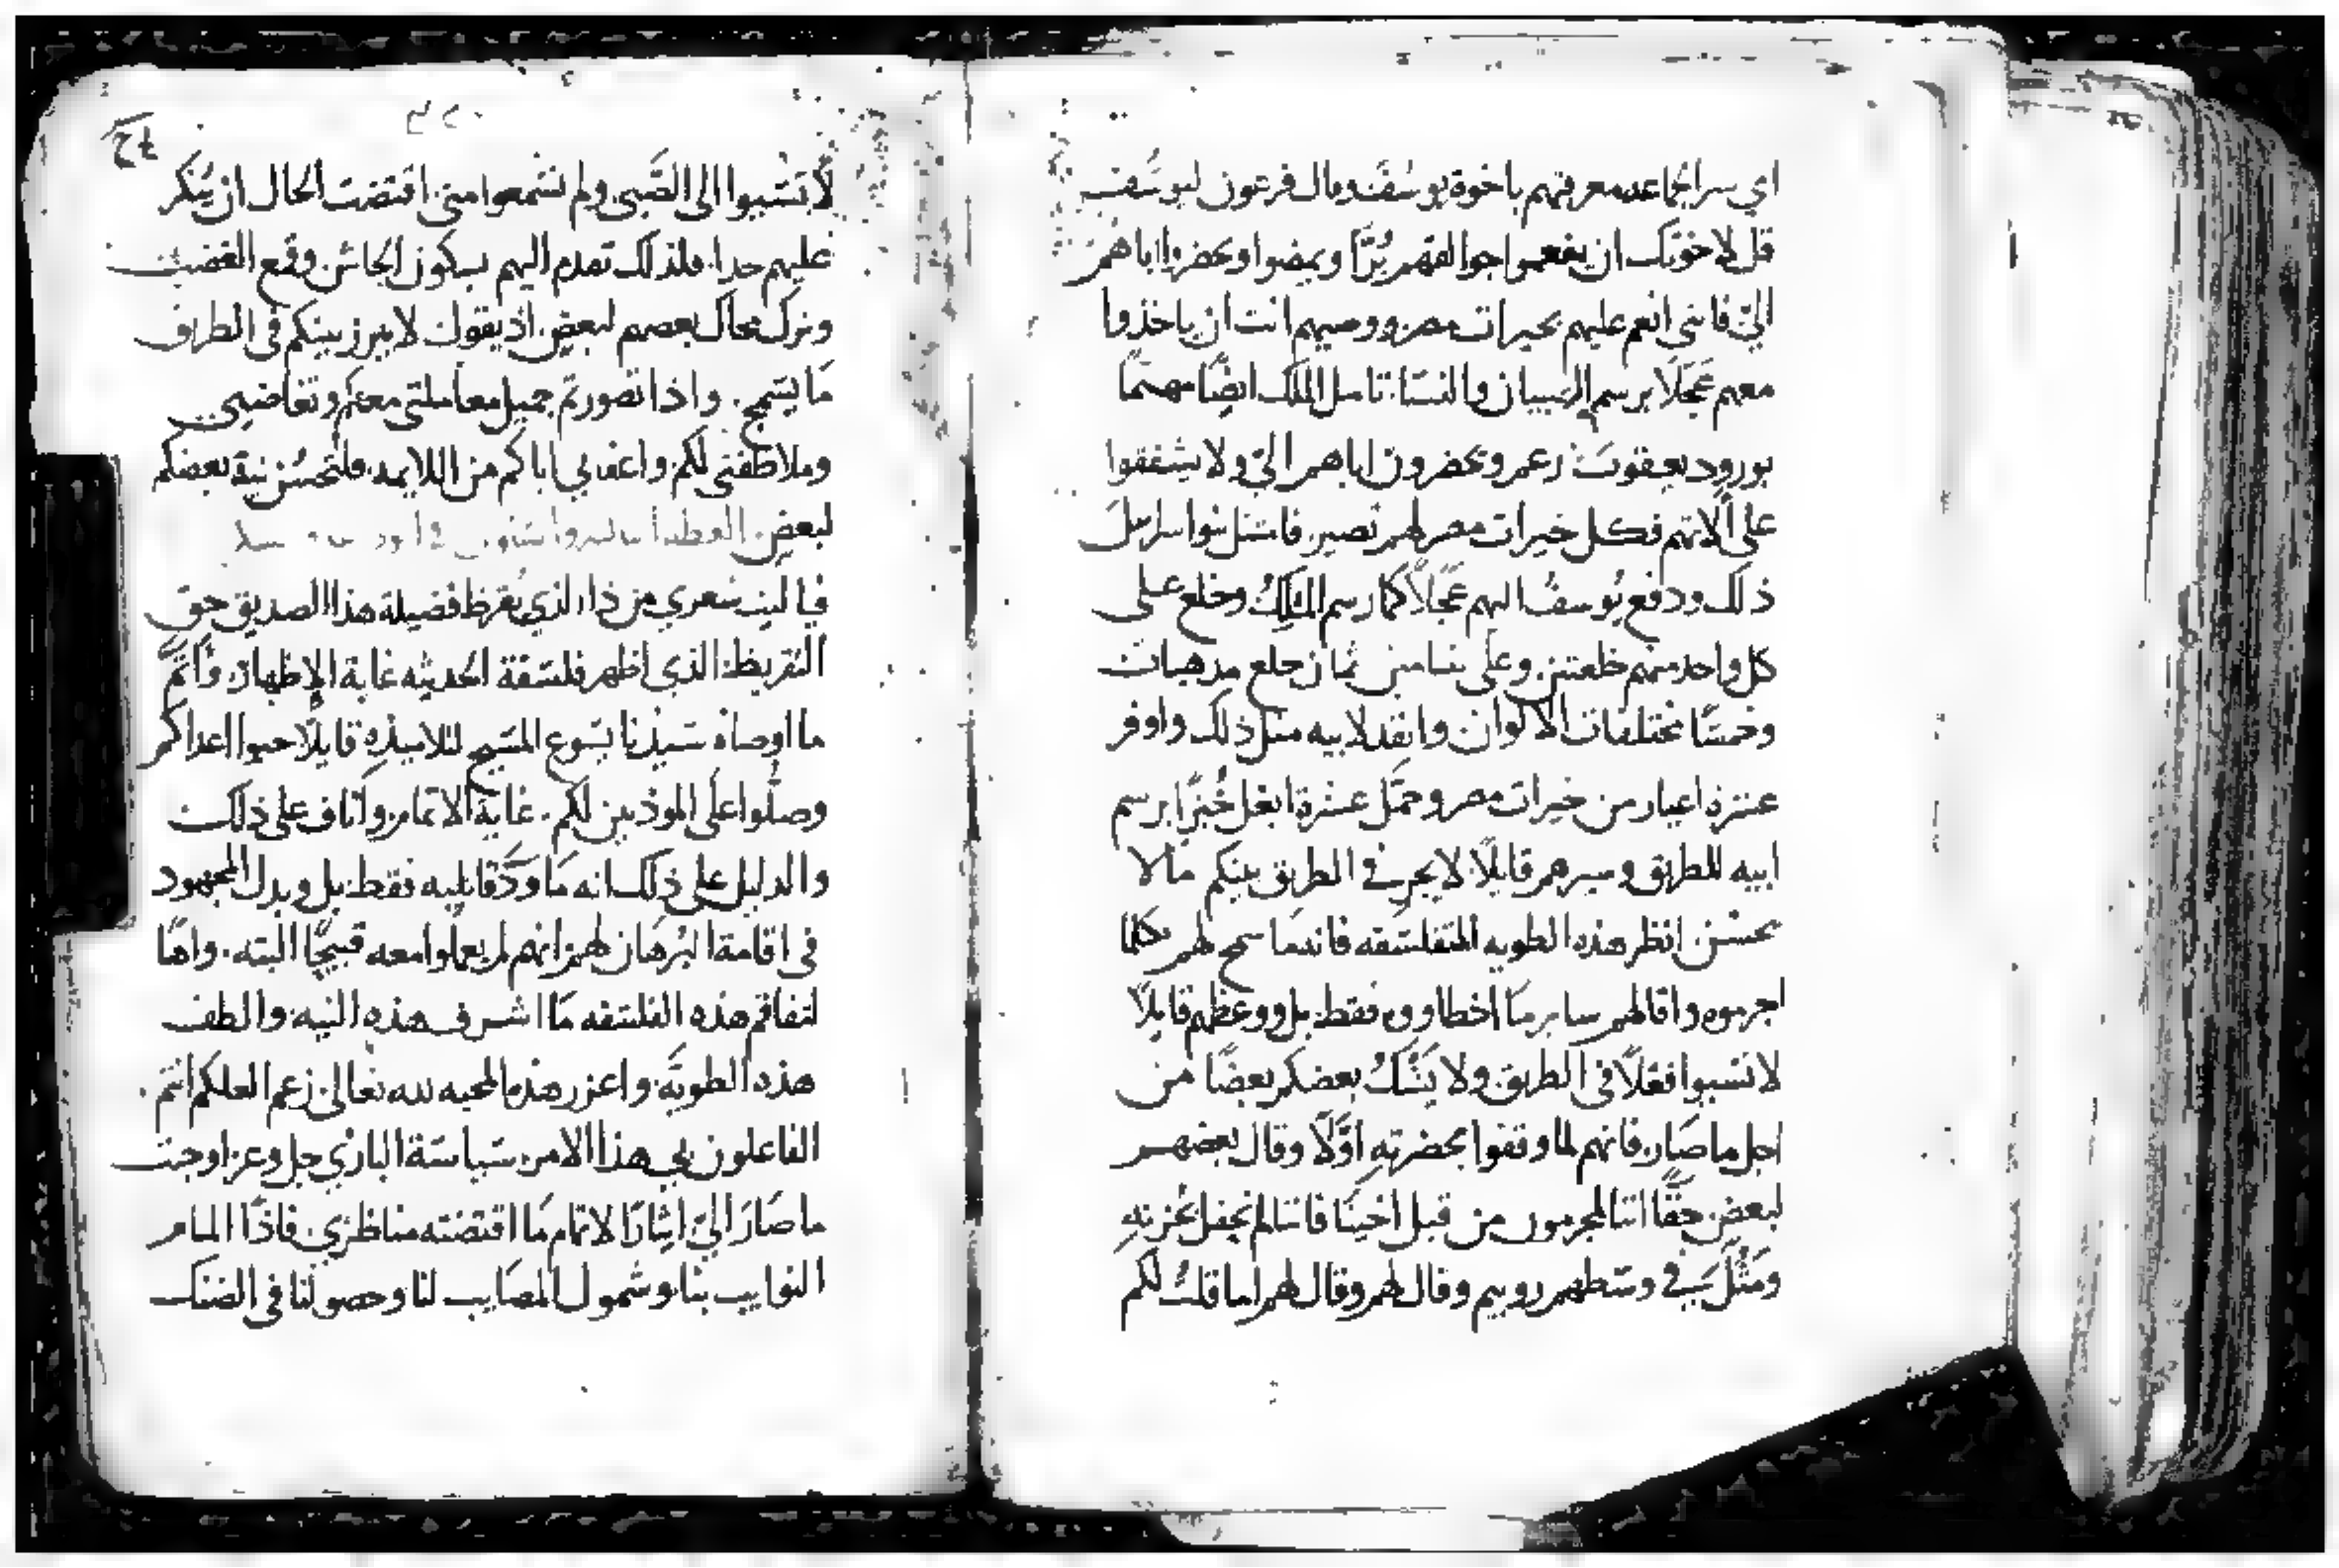 اي سر الجماعه معرفتهم باخوة يوسُف وقال فرعون ليوسُف
قل لاخوتك ان يفعموا جوالقهم بُرًّا ويمضوا ويحضروا اباهم
اليّ فانني انعم عليهم بخيرات مصر ووصيهم انت ان ياخذوا
معهم عَجَلًا برسم الصبيان والنسَا. تامل الملك ايضًا مهتمًا
بورود يعقوبَ زعم ويحضرون اباهم اليّ ولا يشفقوا
على الاتهم فكل خيرات مصر لهم تصير. فامتثل بنوا اسراييل
ذلك ودفع يُوسفُ اليهم عَجَلًا كما رسم الملكُ وخلع على
كل واحد منهم خلعتين. وعلى بنيامين ثمان خلع مذهبات
وخمسًا مختلفات الالوان وانفذ لابيه مثل ذلك واوفر
عشرة اعيار من خيرات مصر وحمّل عشرة ابغل خُبزًا برسم
ابيه للطريق وسيرهم قايلًا. لا يجرِ في الطريق بينكم ما لا
يحسُن. انظر هذه الطويه المتفلسَفه فانه ما سمح لهم بكلما
اجرموه واقالهم ساير مَا اخطاووه فقط بل ووعظهم قايلًا
لا تسبوا فعلًا في الطريق ولا يَشْكُ بعضكم بعضًا من
اجل ما صَار. فانهم لما وقفوا بحضرتِهِ اوَّلًا وقال بعضهم
لبعضٍ حقًّا اننا المجرمون من قبل اخينَا فاننا لم نحفل بحزنهِ
وَمَثُلَ في وسَطهم روبيم وقال لهم وقال لهم اما قلتُ لكم
لا تسَبوا الى الصَّبي ولم تسمعوا مني. اقتضت الحال ان يُنكر
عليهم جدا. فلذلك تقدم اليهم بسكون الجاش وقمع الغضب
وترك محال بعضهم لبعض. اذ يقول لا يبرز بينكم في الطريق
مَا يسَمج. واذا تصورتم جميل معاملتي معكم وتغاضيي
وملاطفتي لكم واعفايي اياكم من اللايمه. فلتحسُن نية بعضكم
لبعضٍ.
فيا ليت شعري من ذا الذي يُقرظ فضيلة هذا الصديق حق
التقريظ. الذي اظهر فلسَفة الحديثه غاية الاظهار. وَاتمَّ
ما اوصاه سَيدنا يسَوع المسَيح لتلاميذِهِ قايلًا حبوا اعداكم
وصلّوا على الموذيين لكم. غاية الاتمام. واناف على ذلك
والدليل على ذلك انه مَا وَدَّ قاتليه فقط. بل وبذل المجهود
في اقامة البُرهَان لهم انهم لم يعملوا معه قبيحًا البته. واهًا
لتفاقم هذه الفلسَفه مَا اشرف هذه النيه. والطف
هذه الطويَّه. واعزر هذه المحبه لله تعالى. زعم العلكم انتم.
الفاعلون بي هذا الامر. سَياسَة الباري جل وعز اوجبت
ما صَارَ اليّ ايثارًا لاتمام مَا اقتضته مناظري. فاذًا المام
النوايب بنا. وشمول المصَايب لنا وحصولنا في الضنك